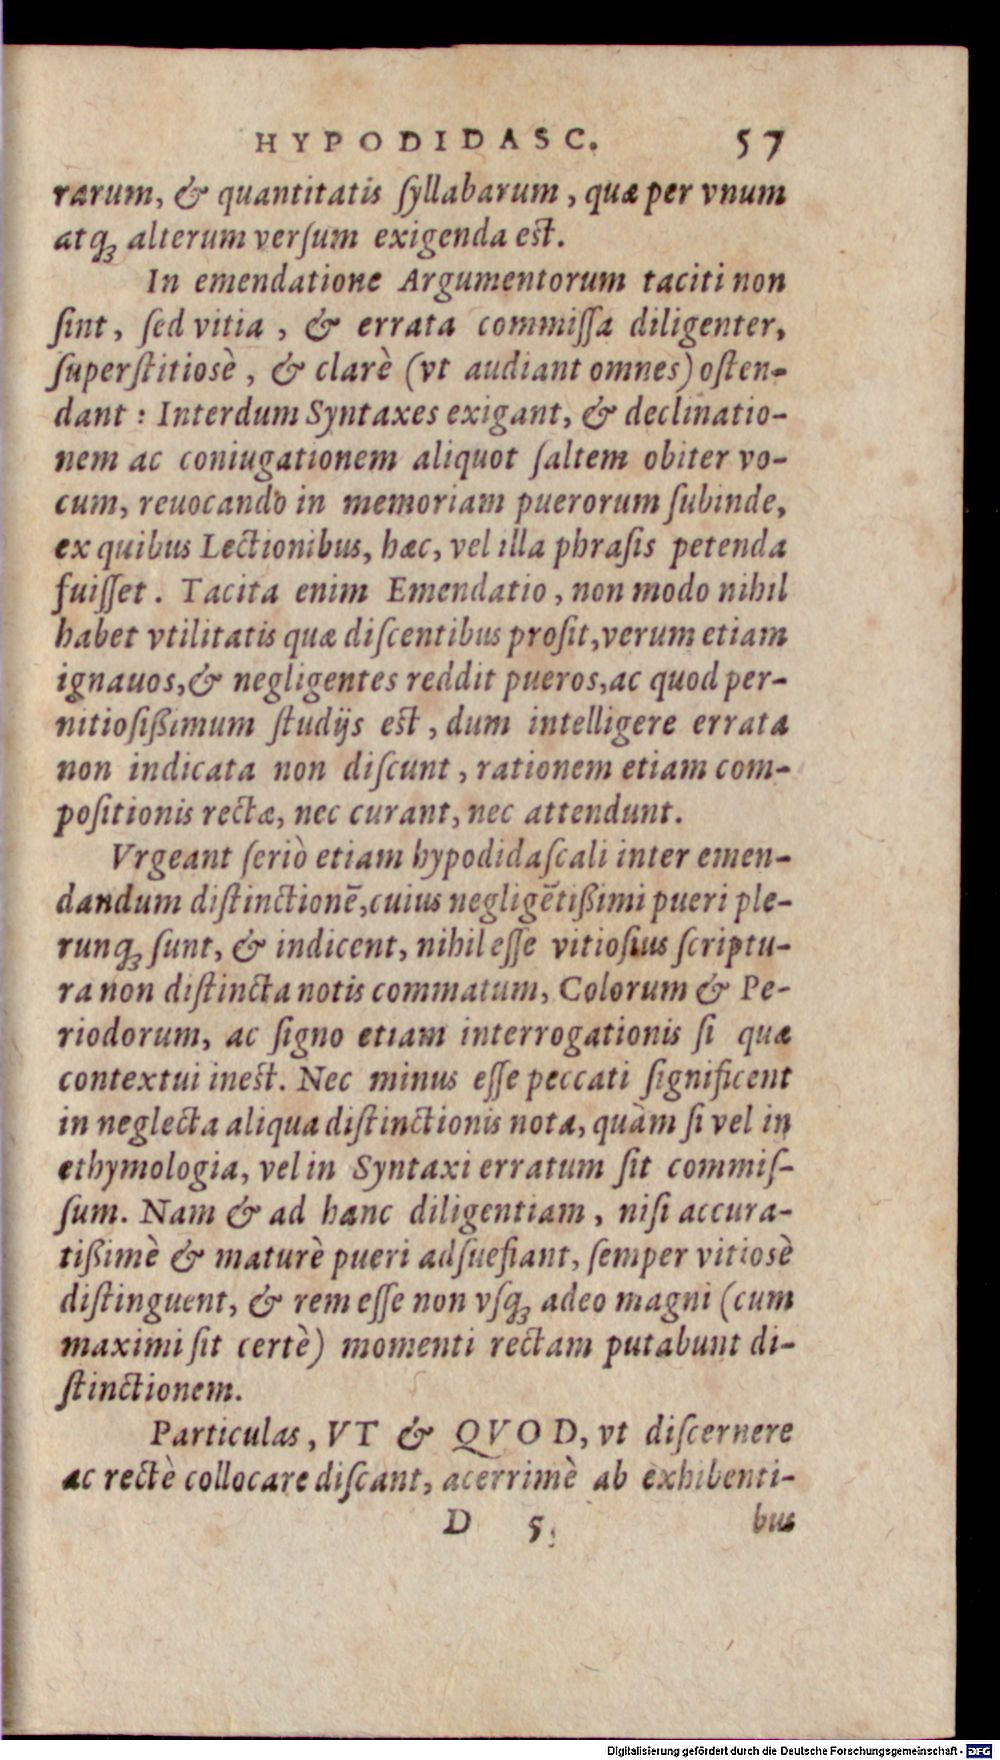 HYPODIDASC. 57
rarum, & quantitatis ſyllabarum, quæ per vnum
atq́ꝫ alterum verſum exigenda est.
In emendatione Argumentorum taciti non
ſint, ſed vitia, & errata commiſſa diligenter,
ſuperſtitiosè, & clarè (vt audiant omnes) oſten-
dant: Interdum Syntaxes exigant, & declinatio-
nem ac coniugationem aliquot ſaltem obiter vo-
cum, reuocando in memoriam puerorum ſubinde,
ex quibus Lectionibus, hæc, vel illa phraſis petenda
fuiſſet. Tacita enim Emendatio, non modo nihil
habet vtilitatis quæ diſcentibus proſit, verum etiam
ignauos, & negligentes reddit pueros, ac quod per-
nitioſißimum ſtudijs est, dum intelligere errata
non indicata non diſcunt, rationem etiam com-
poſitionis rectæ, nec curant, nec attendunt.
Vrgeant ſeriò etiam hypodidaſcali inter emen-
dandum diſtinctionē, cuius negligētißimi pueri ple-
runqꝫ ſunt, & indicent, nihil eſſe vitioſius ſcriptu-
ra non diſtincta notis commatum, Colorum & Pe-
riodorum, ac ſigno etiam interrogationis ſi quæ
contextui inest. Nec minus eſſe peccati ſignificent
in neglecta aliqua diſtinctionis nota, quàm ſi vel in
ethymologia, vel in Syntaxi erratum ſit commiſ-
ſum. Nam & ad hanc diligentiam, niſi accura-
tißimè & maturè pueri adſuefiant, ſemper vitiosè
diſtinguent, & rem eſſe non vſqꝫ adeo magni (cum
maximi ſit certè) momenti rectam putabunt di-
ſtinctionem.
Particulas, VT & QVOD, vt diſcernere
ac rectè collocare diſcant, acerrimè ab exhibenti-
D 5 bus
Digitalisierung gefördert durch die Deutsche Forschungsgemeinschaft - DFG